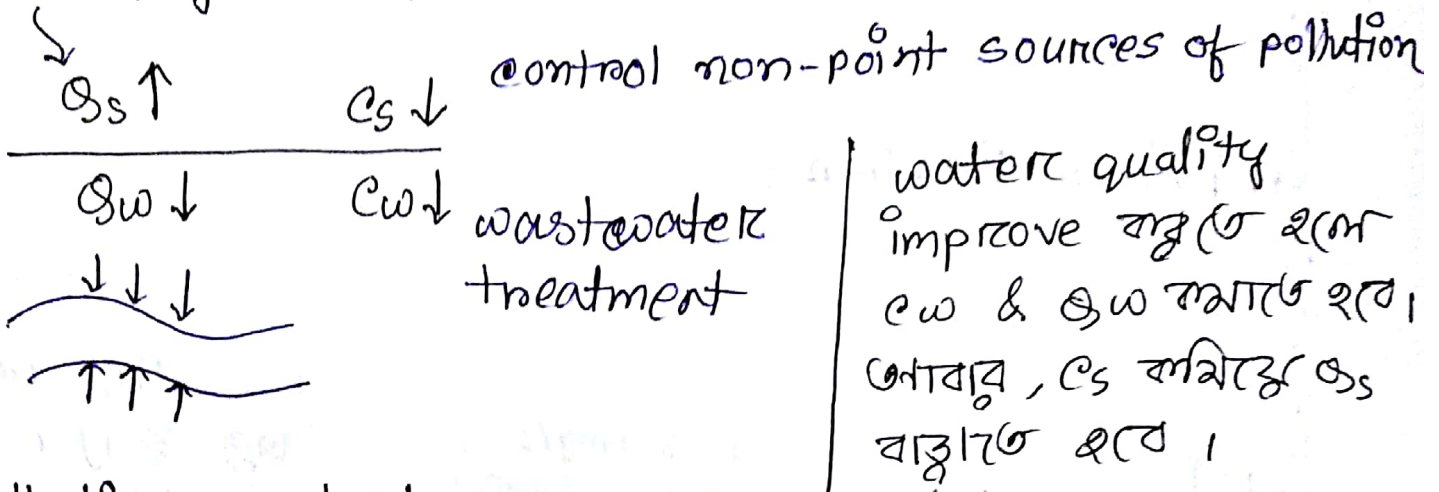 Qs ↑ Cs ↓ control non-point sources of pollution
Qw ↓ Cw ↓ wastewater
treatment
water quality
improve করতে হলে
Cw & Qw কমাতে হবে।
আবার, Cs কমিয়ে Qs
বাড়াতে হবে।